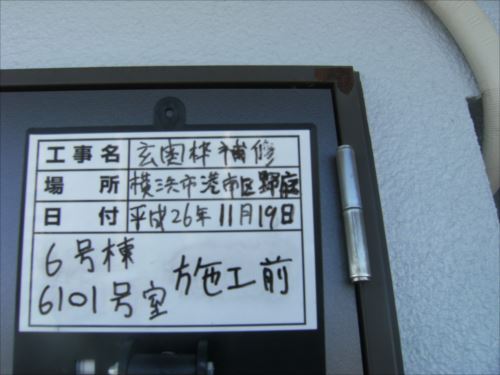 工事名 玄関枠補修
場所 横浜市港南区野庭
日付 平成26年11月19日
6号棟
6101号室 施工前